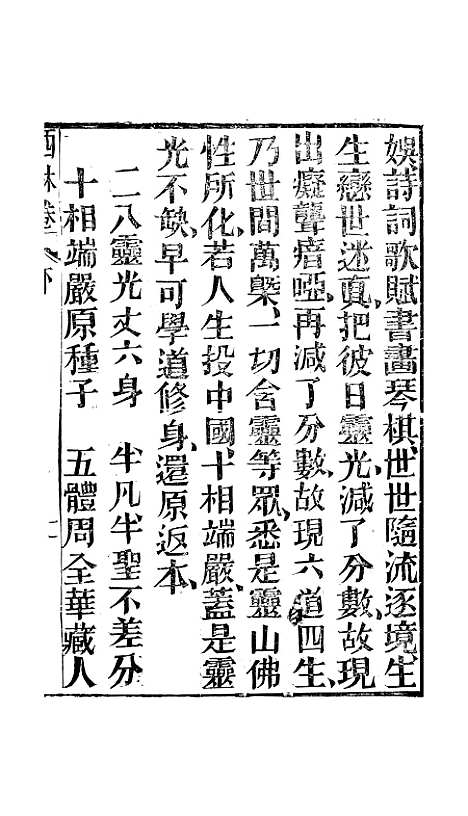 娛詩詞歌賦書畵琴棋、世世隨流逐境、生
生戀世迷眞、把彼日靈光、減了分數、故現
出癡聾瘖啞、再減了分數、故現六道四生、
乃世間萬槩、一切含靈等眾、悉是靈山佛
性所化、若人生投中國、十相端嚴、蓋是靈
光不缺、早可學道修身、還原返本、
二八靈光丈六身　半凡半聖不差分
十相端嚴原種子　五體周全華藏人
林卷